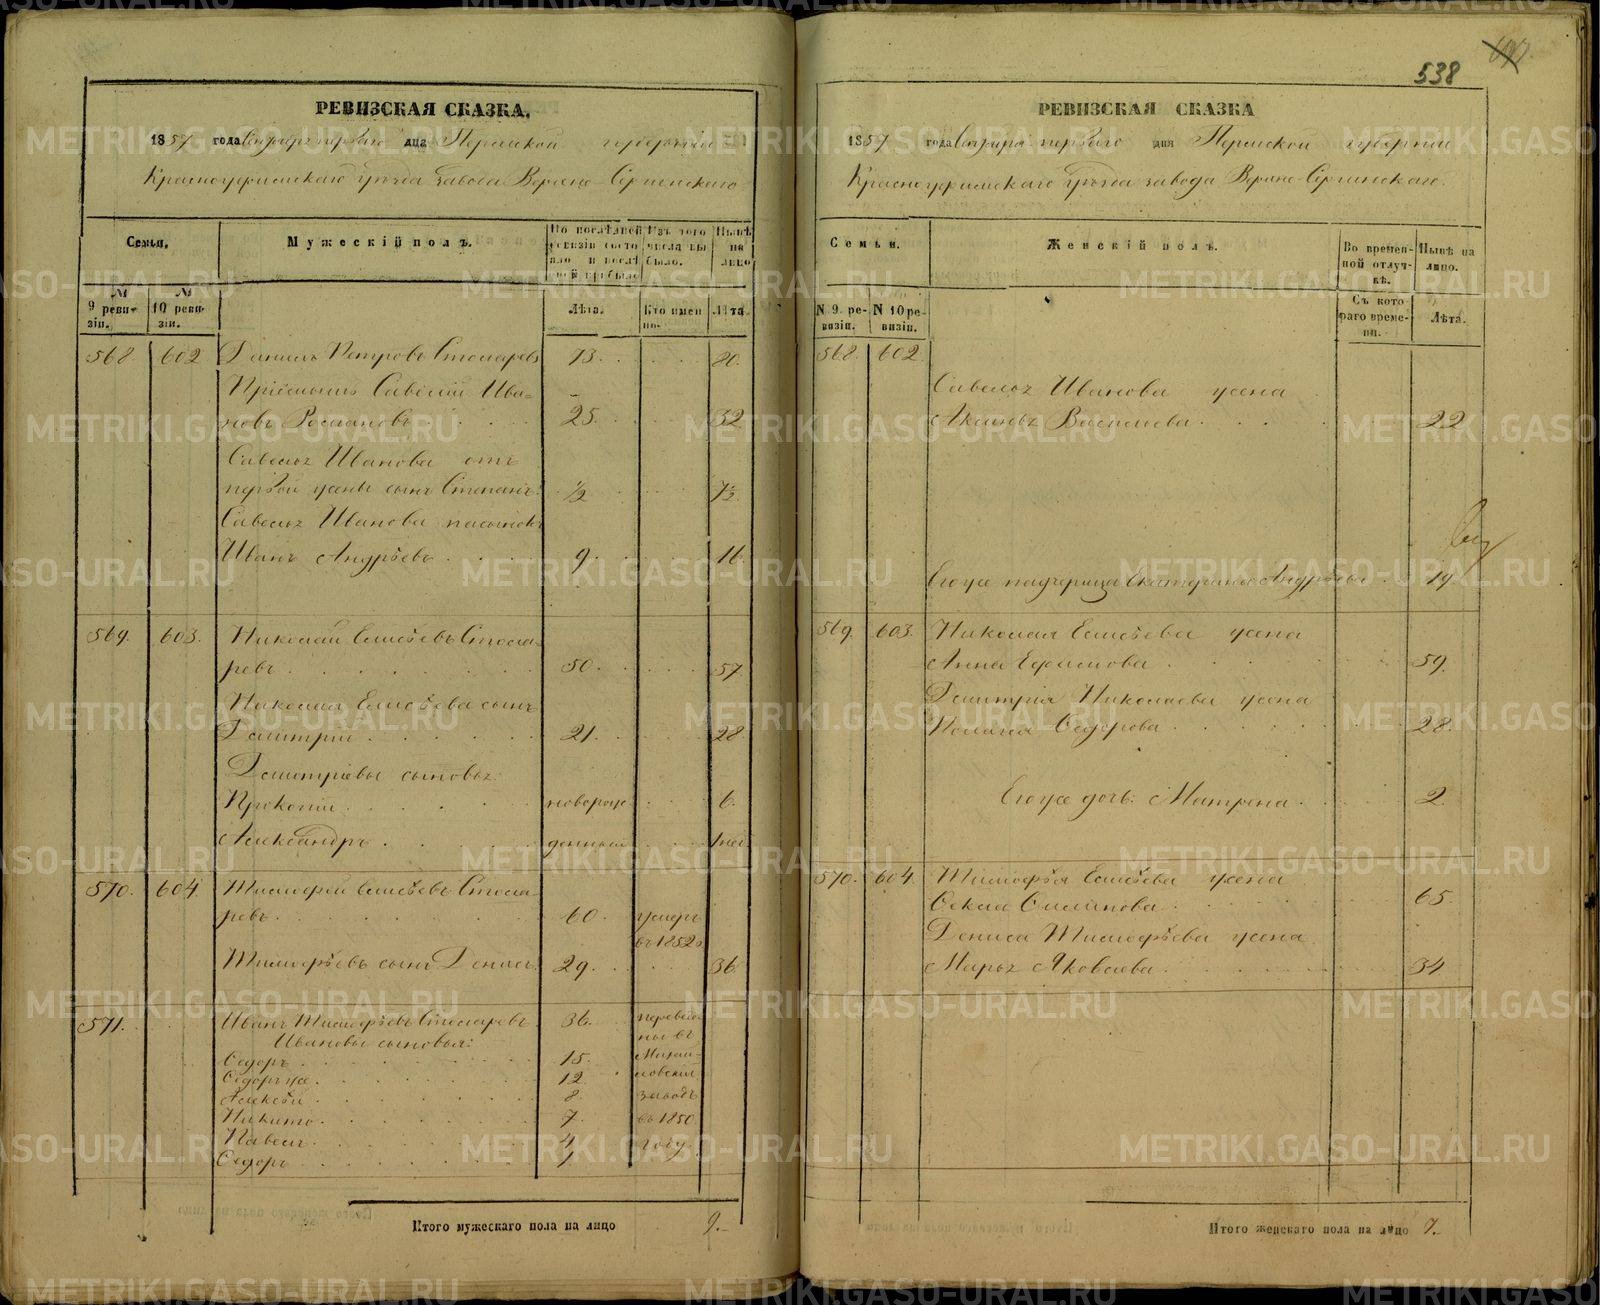 538
РЕВИЗСКАЯ СКАЗКА.
1857 года первого дня Пермской губернии
Красноуфимскаго уѣзда завода Верхне-Сергинскаго
Семьи.
Мужескій полъ.
По послѣдней ревизіи состояло и послѣ той прибыло
Изъ того числа выбыло.
Нынѣ на лицо
№ 9 ревизіи.
№ 10 ревизіи.
Лѣта.
Кто именно.
Лѣта.
568 602 Данилъ Петровъ Столяревъ 73 80.
Пріемышъ Савелій Ива-
новъ Росмановъ 25 32
Савелья Иванова отъ
первой жены сынъ Степанъ ½ 7½
Савелья Иванова пасынокъ
Иванъ Андрѣевъ 9 16
569. 603. Николай Елисѣевъ Столя-
ревъ 50 57
Николая Елисѣева сынъ
Дмитрій 21. 28
Дмитріевы сыновья:
Прокопій новорож 6.
Александръ денный 1 нед
570. 604. Тимофей Елисѣевъ Столя-
ревъ 60 умеръ
въ 1852
Тимофѣевъ сынъ Денисъ 29. 36.
571. Иванъ Тимофѣевъ Столяревъ 36. переведе-
Ивановы сыновья: ны въ
Ѳедоръ 15. Михай-
Ѳедоръ же 12 ловскій
Алексѣй 8. заводъ
Никита 7. въ 1850
Павелъ 4 году.
Ѳедоръ 1
Итого мужескаго пола на лицо 9.
РЕВИЗСКАЯ СКАЗКА
1857 года первого дня Пермской губерніи
Красноуфимскаго уѣзда завода Верхне-Сергинскаго.
Семьи.
Женскій полъ.
Во временной отлучкѣ.
Нынѣ на лицо.
N 9. ревизіи.
N 10 ревизіи.
Съ котораго времени.
Лѣта.
568. 602
Савелья Иванова жена
Аксинья Васильева 22
Его же падчерица Екатерина Андрѣева 19.
569. 603. Николая Елисѣева жена
Анна Ефимова 59.
Дмитрія Николаева жена
Пелагея Ѳедорова 28.
Его же дочь: Матрена 2
570. 604. Тимофѣя Елисѣева жена
Ѳекла 65.
Дениса Тимофѣева жена
Марья Яковлева 34
Итого женскаго пола на лицо 7.
METRIKI.GASO-URAL.RU